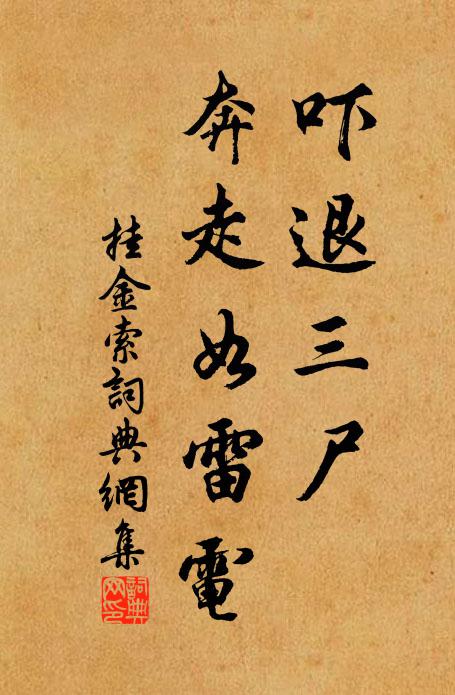 吓退三尸
奔走如雷電
挂金索詞典網集
詞典
网印